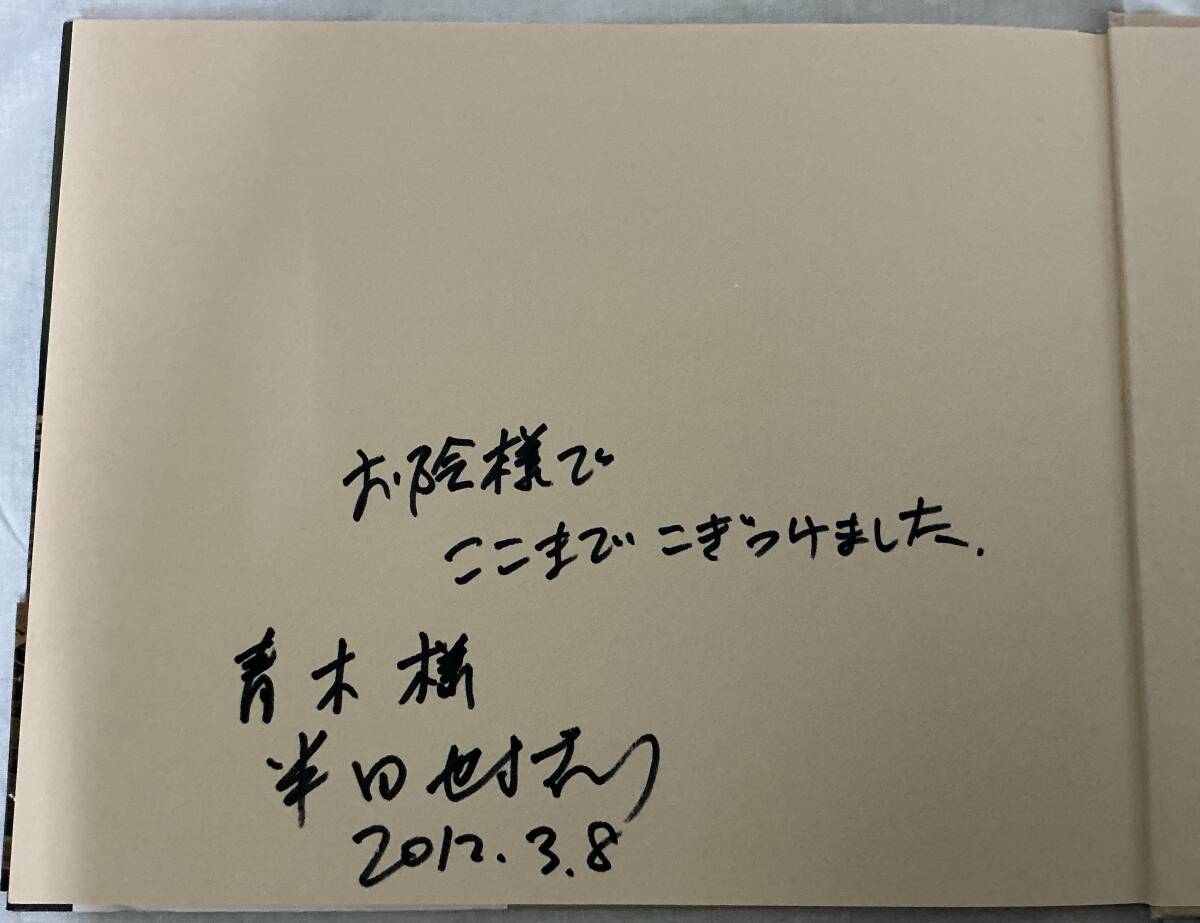 お陰様で
ここまでこぎつけました.
青木様
半田也寸志
2012.3.8